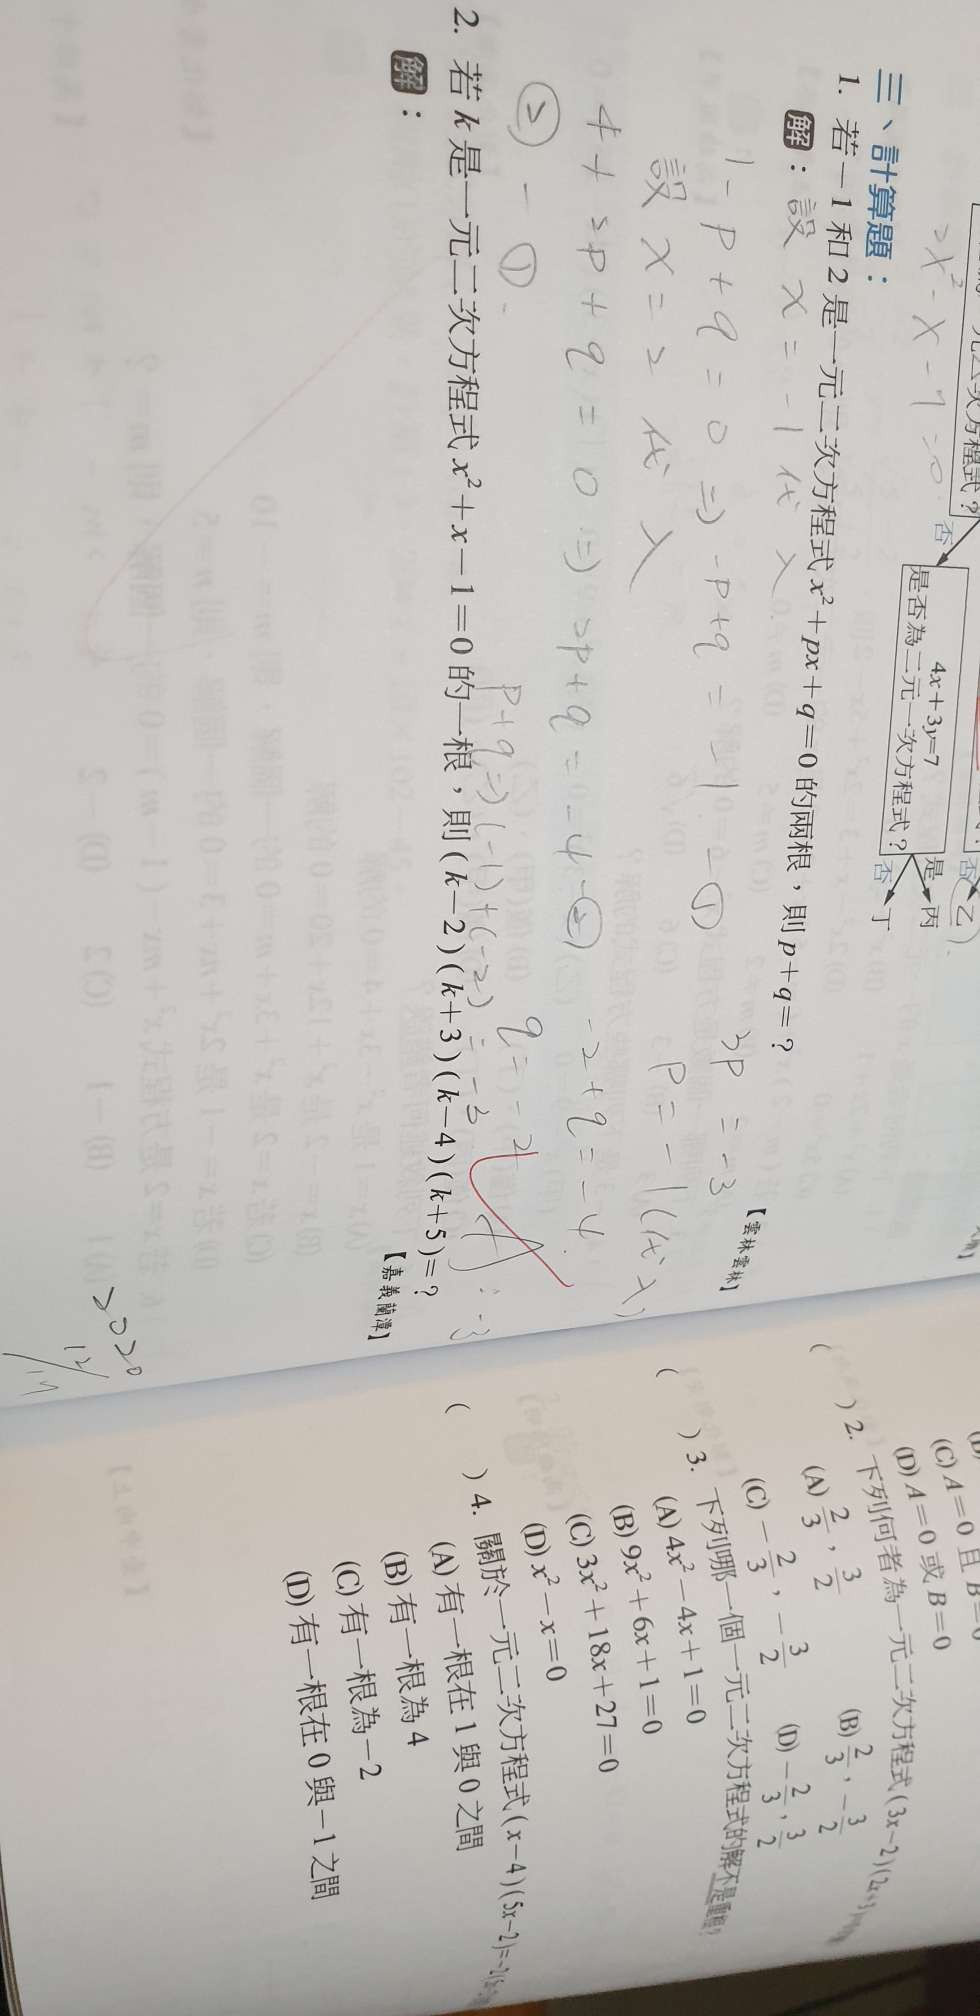 2x²-x-7=0
元二次方程式？
否
4x+3y=7
是否為二元一次方程式？
否
乙
是
丙
否
丁
三、計算題：
1. 若－1和2是一元二次方程式x²+px+q=0的兩根，則p+q=？
【雲林雲林】
解：設 x=-1 代入
1-p+q=0 ⇒ -p+q=-1-①
設 x=2 代入
4+2p+q=0 ⇒ 2p+q=-4-②
②-①
3p=-3
p=-1(代入)
-2+q=-4
q=-2
p+q⇒(-1)+(-2)=-3
A:-3
2. 若k是一元二次方程式x²+x-1=0的一根，則(k-2)(k+3)(k-4)(k+5)=？
【嘉義蘭潭】
解：
2020
12/17
(C) A=0且B=0
(D) A=0或B=0
( ) 2. 下列何者為一元二次方程式(3x-2)(2x+3)
(A) 2/3，3/2
(B) 2/3，-3/2
(C) -2/3，-3/2
(D) -2/3，3/2
( ) 3. 下列哪一個一元二次方程式的解不是重根？
(A) 4x²-4x+1=0
(B) 9x²+6x+1=0
(C) 3x²+18x+27=0
(D) x²-x=0
( ) 4. 關於一元二次方程式(x-4)(5x-2)=
(A) 有一根在1與0之間
(B) 有一根為4
(C) 有一根為-2
(D) 有一根在0與-1之間